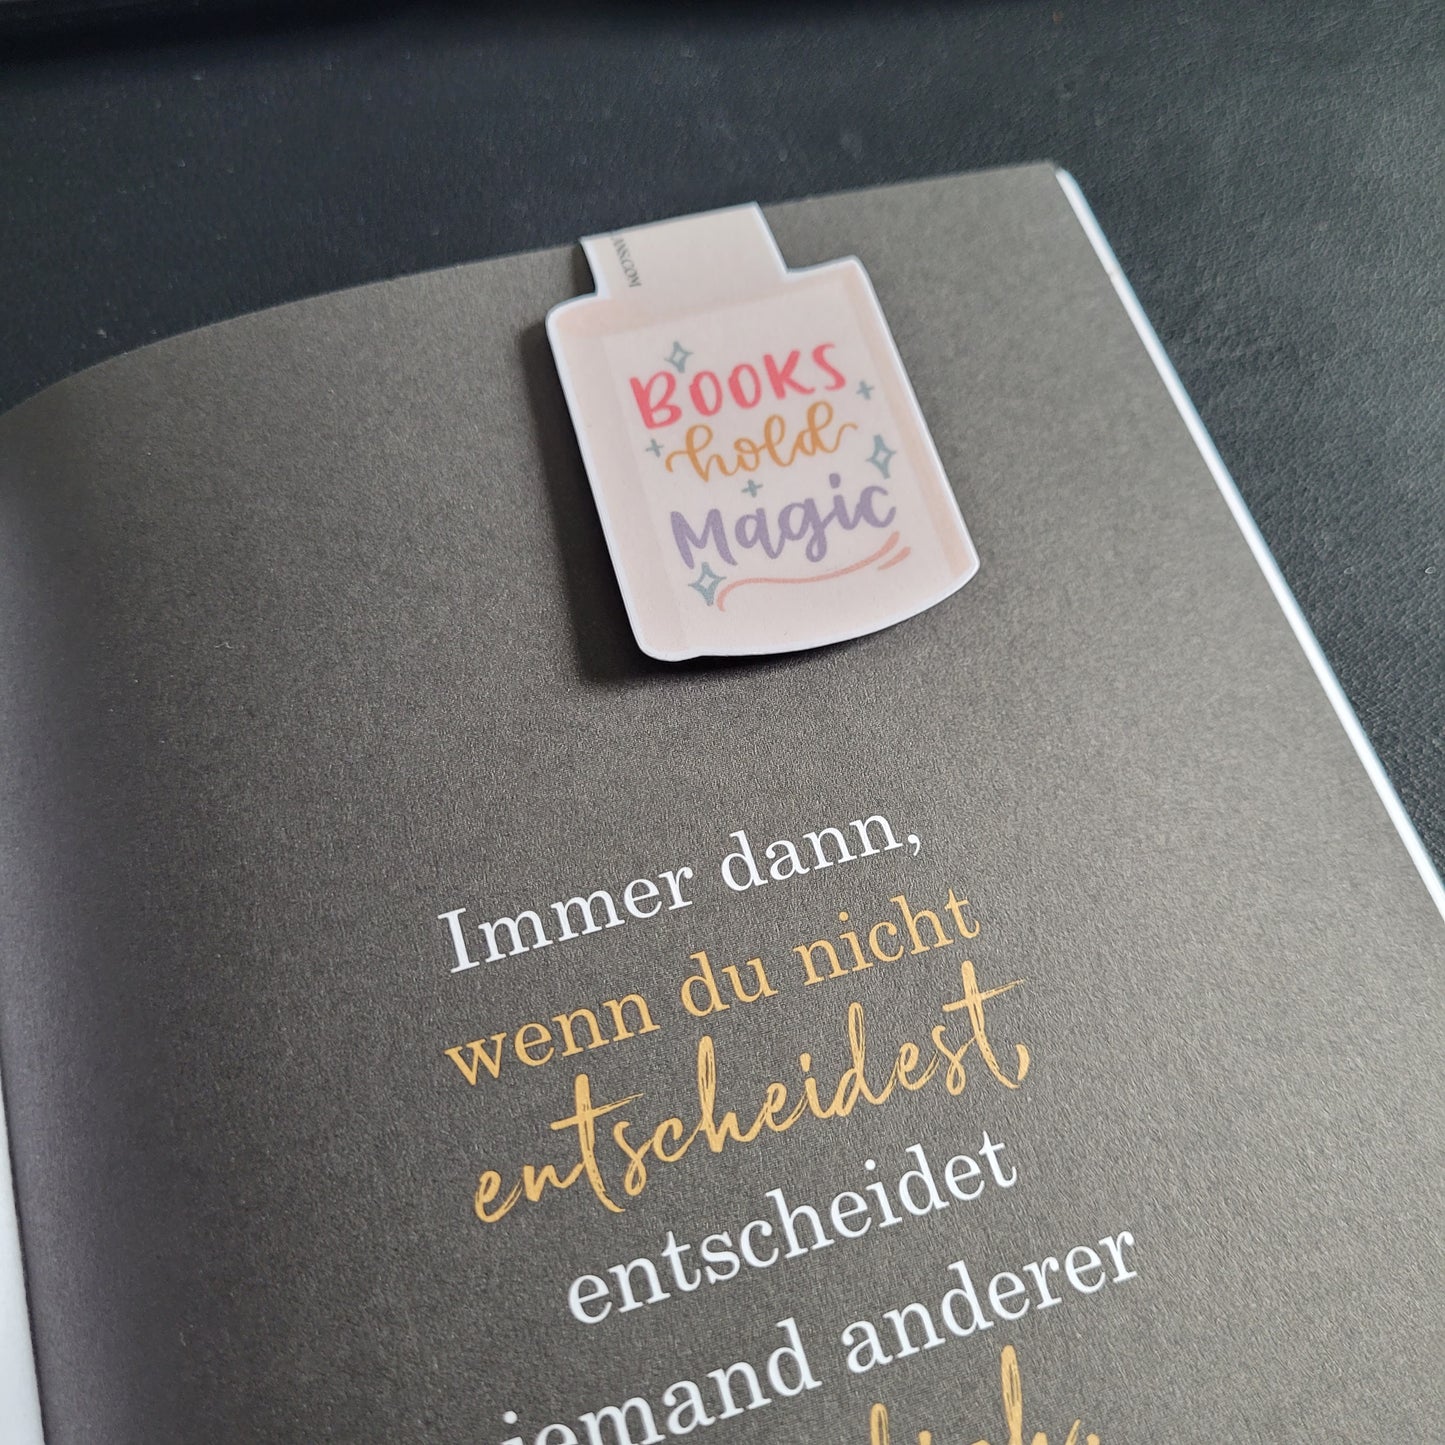 Books
hold
Magic
Immer dann,
wenn du nicht
entscheidest,
entscheidet
jemand anderer